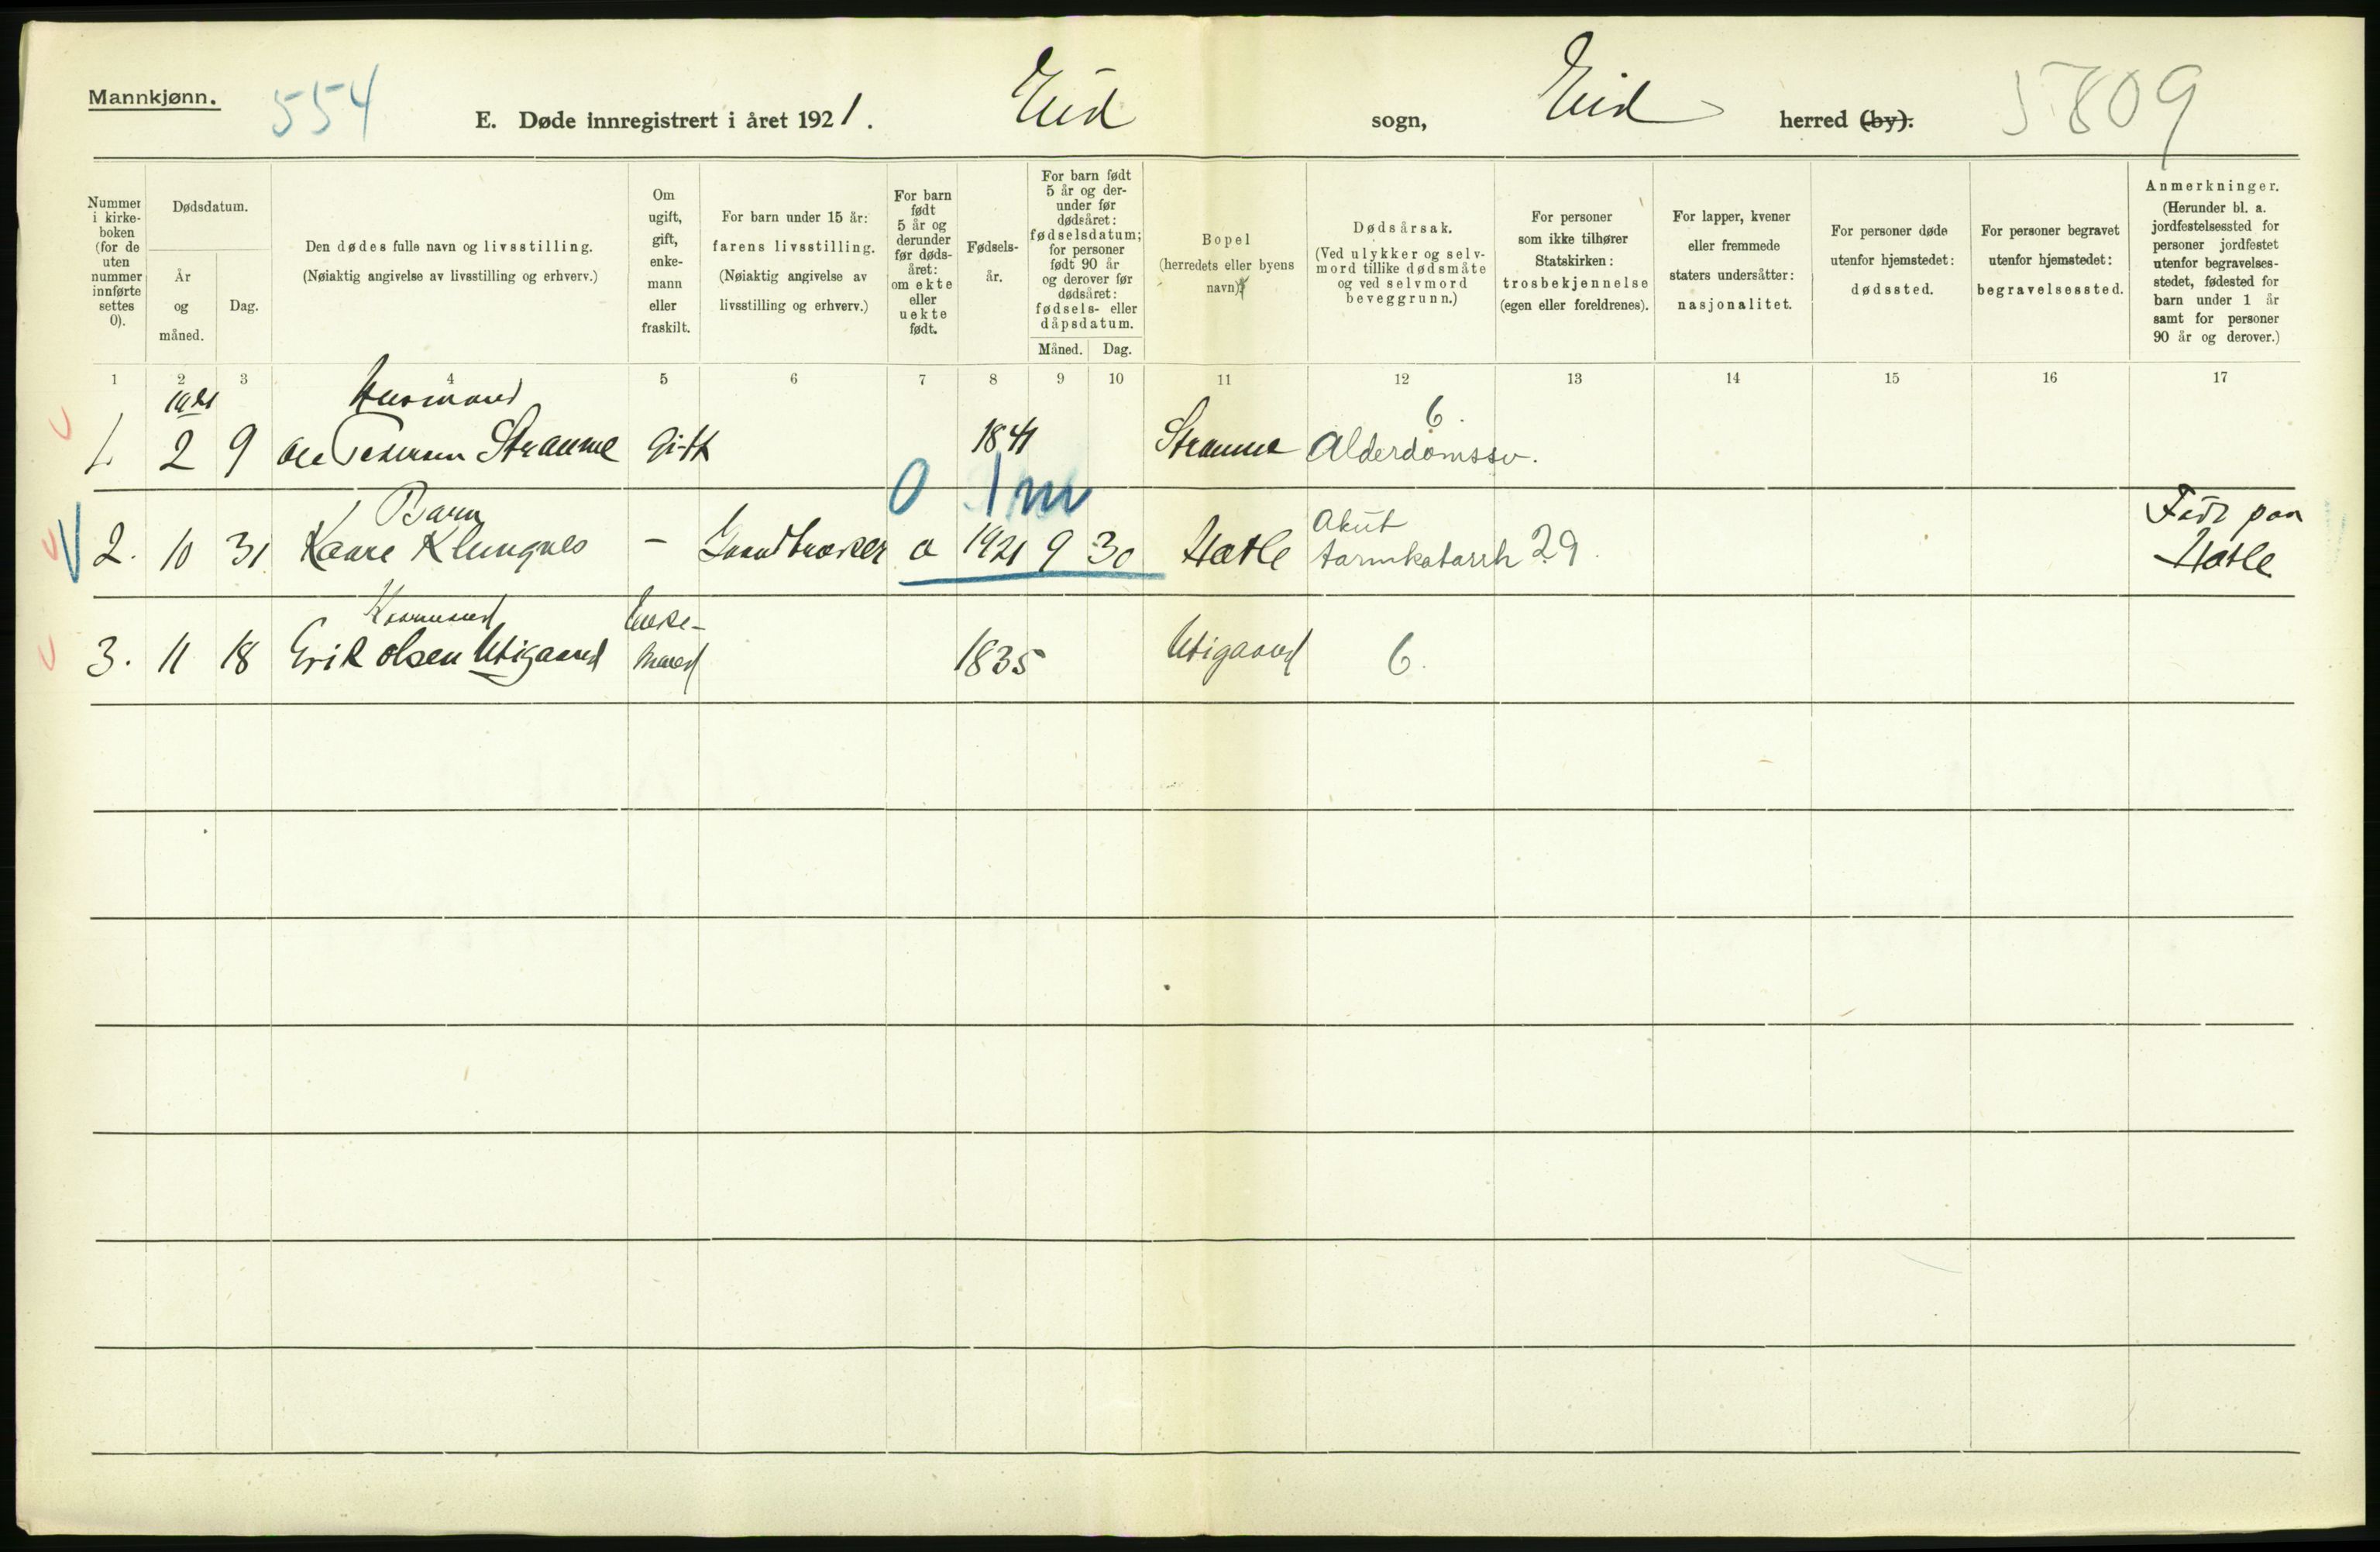 Mannkjønn.
554
E. Døde innregistrert i året 1921.
Eid
sogn,
Eid
herred (by).
5809
Nummer i kirkeboken (for de uten nummer innførte settes 0).
Dødsdatum.
År og måned.
Dag.
Den dødes fulle navn og livsstilling.
(Nøiaktig angivelse av livsstilling og erhverv.)
Om ugift, gift, enkemann eller fraskilt.
For barn under 15 år:
farens livsstilling.
(Nøiaktig angivelse av livsstilling og erhverv.)
For barn født 5 år og derunder før dødsåret: om ekte eller uekte født.
Fødselsår.
For barn født 5 år og derunder før dødsåret: fødselsdatum; for personer født 90 år og derover før dødsåret: fødsels- eller dåpsdatum.
Måned.
Dag.
Bopel
(herredets eller byens navn)
Dødsårsak.
(Ved ulykker og selvmord tillike dødsmåte og ved selvmord beveggrunn.)
For personer som ikke tilhører Statskirken:
trosbekjennelse
(egen eller foreldrenes).
For lapper, kvener eller fremmede staters undersåtter:
nasjonalitet.
For personer døde utenfor hjemstedet:
dødssted.
For personer begravet utenfor hjemstedet:
begravelsessted.
Anmerkninger.
(Herunder bl. a. jordfestelsessted for personer jordfestet utenfor begravelsesstedet, fødested for barn under 1 år samt for personer 90 år og derover.)
1 2 3 4 5 6 7 8 9 10 11 12 13 14 15 16 17
1921 Husmand 6.
1. 2 9 Ole Pedersen Straume Gift 1841 Straume Alderdomssv.
0 1 m
Barn Akut Født paa
2. 10 31 Kaare Klungnes - Gaardbruker a 1921 9 30 Hatle tarmkatarrh 29. Hatle
Enke-
3. 11 18 Erik Olsen Utigaard mand 1835 Utigaard 6.